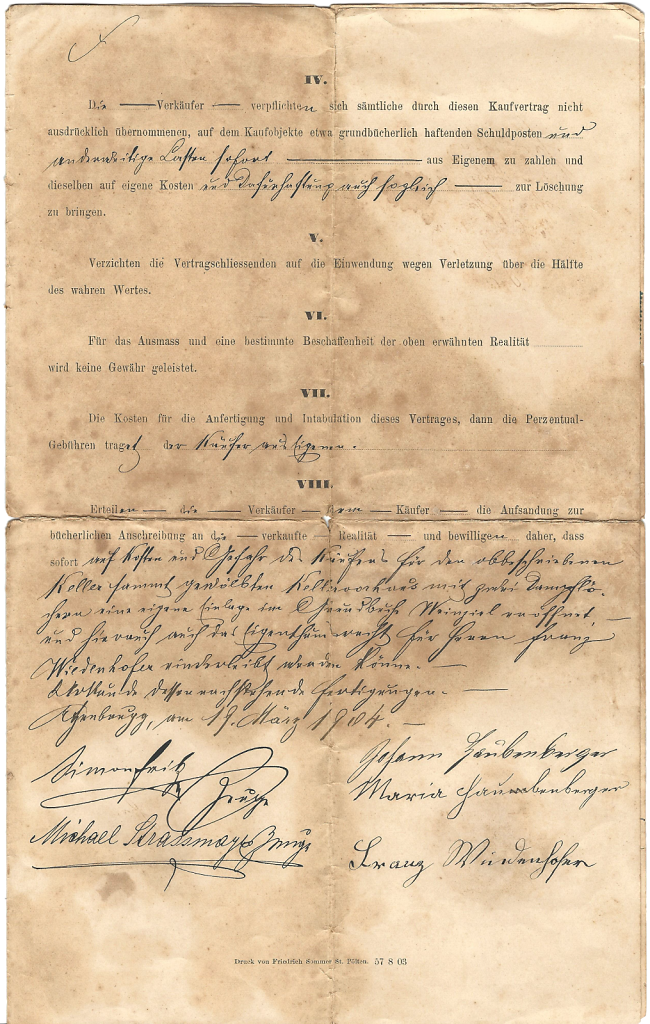 IV.
Die — Verkäufer — verpflichten sich sämtliche durch diesen Kaufvertrag nicht
ausdrücklich übernommenen, auf dem Kaufobjekte etwa grundbücherlich haftenden Schuldposten und
anderweitige Lasten sofort — aus Eigenem zu zahlen und
dieselben auf eigene Kosten und auch sogleich — zur Löschung
zu bringen.
V.
Verzichten die Vertragschliessenden auf die Einwendung wegen Verletzung über die Hälfte
des wahren Wertes.
VI.
Für das Ausmass und eine bestimmte Beschaffenheit der oben erwähnten Realität
wird keine Gewähr geleistet.
VII.
Die Kosten für die Anfertigung und Intabulation dieses Vertrages, dann die Perzentual-
Gebühren traget der Käufer aus Eigenem.
VIII.
Erteilen — die — Verkäufer — dem — Käufer — die Aufsandung zur
bücherlichen Anschreibung an die — verkaufte — Realität — und bewilligen daher, dass
sofort auf Kosten und Gefahr des Käufers für den obbeschriebenen
Keller sammt gewölbten mit zwei
eine eigene Einlage im Grundbuche Weinziel eröffnet,
und hierauch auch das Eigenthumsrecht für Herrn Franz
Wiedenhofer einverleibt werden könne. —
Urkunde dessen nachstehende Fertigungen. —
am 19. März 1904. —
Johann
Simon Fritz
Zeuge
Maria
Michael Strassmayr Zeuge
Franz Wiedenhofer
Druck von Friedrich Sommer St. Pölten. 57 8 03